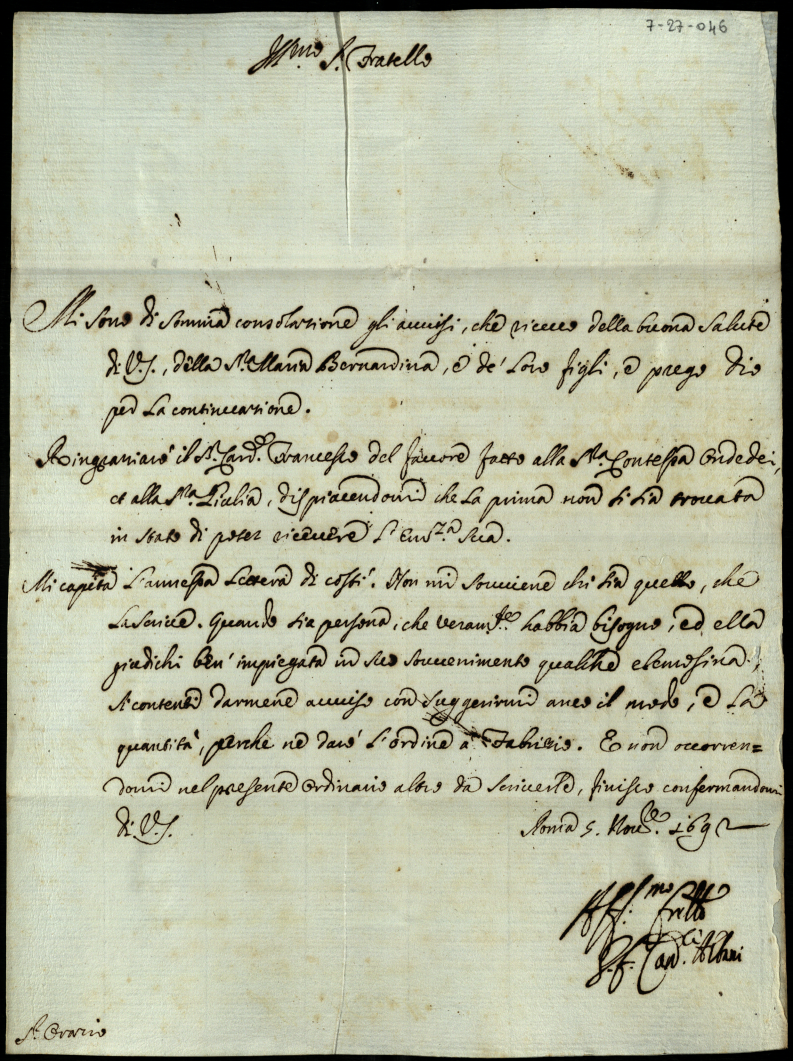 7-27-046
Ill.mo S.r Fratello
Mi sono di somma consolazione gli auuisi, che riceuo della buona salute
di V.S., della S.ra Maria Bernardina, e de' loro figli, e prego Dio
per la continuazione.
Ringraziarò il S.r Card.le Francesco del fauore fatto alla S.ra Contessa Ondedei,
et alla S.ra Giulia, dispiacendomi che la prima non si sia trouata
in stato di poter riceuere l'Em.za Sua.
Mi capita l'annessa lettera di costì. Non mi souuiene chi sia quello, che
la scriue. Quando sia persona, che veram.te habbia bisogno, ed ella
giudichi ben' impiegata in suo souuenimento qualche elemosina,
si contenti darmene auuiso con suggerirmi anco il modo, e la
quantità, perche ne darò l'ordine a Fabrizio. E non occorren=
domi nel presente ordinario altro da scriuerle, finisco confermandomi
di V.S. Roma 5. Nou.re 1692
Aff.mo Fratello
G.F. Card.li Albani
S.r Orazio